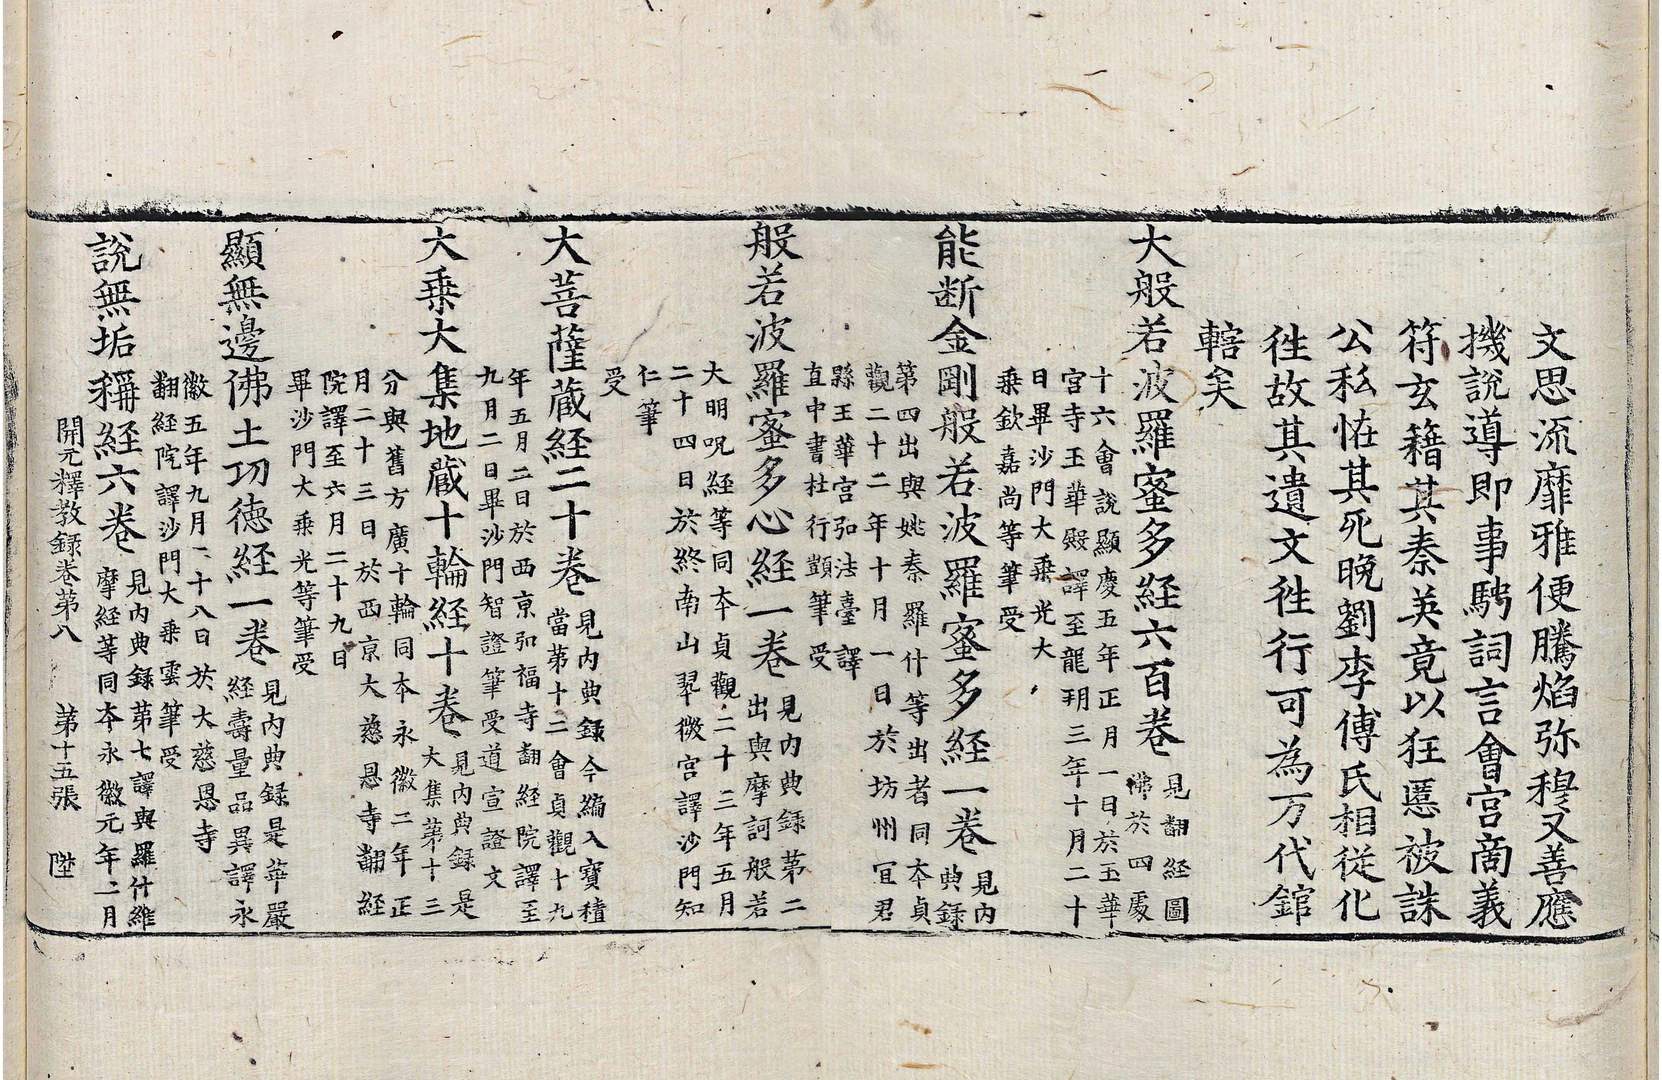 文思流靡雅便騰焰弥穆又善應
機說導即事騁詞言會宮商義
符玄籍其秦英竟以狂慝被誅
公私恠其死晚劉李傅氏相從化
徃故其遺文徃行可為万代錧
轄矣
大般若波羅蜜多経六百卷
見翻経圖
佛於四處
十六會說顯慶五年正月一日於玉華
宮寺玉華殿譯至龍朔三年十月二十
日畢沙門大乘光大
乘欽嘉尚等筆受
能断金剛般若波羅蜜多経一卷
見內
典錄
第四出與姚秦羅什等出者同夲貞
觀二十二年十月一日於坊州冝君
縣玉華宮弘法臺譯
直中書杜行顗筆受
般若波羅蜜多心経一卷
見內典錄第二
出與摩訶般若
大明呪経等同夲貞觀二十三年五月
二十四日於終南山翠微宮譯沙門知
仁筆
受
大菩薩蔵経二十卷
見內典錄今編入寶積
當第十二會貞觀十九
年五月二日於西京弘福寺翻経院譯至
九月二日畢沙門智證筆受道宣證文
大乗大集地蔵十輪経十卷
見內典錄是
大集第十三
分與舊方廣十輪同夲永徽二年正
月二十三日於西京大慈恩寺翻経
院譯至六月二十九日
畢沙門大乘光等筆受
顯無邊佛土功徳経一卷
見內典錄是華嚴
経壽量品異譯永
徽五年九月二十八日於大慈恩寺
翻経院譯沙門大乘雲筆受
說無垢稱経六卷
見內典錄第七譯與羅什維
摩経等同夲永徽元年二月
開元釋教録卷第八 第十五張 陞